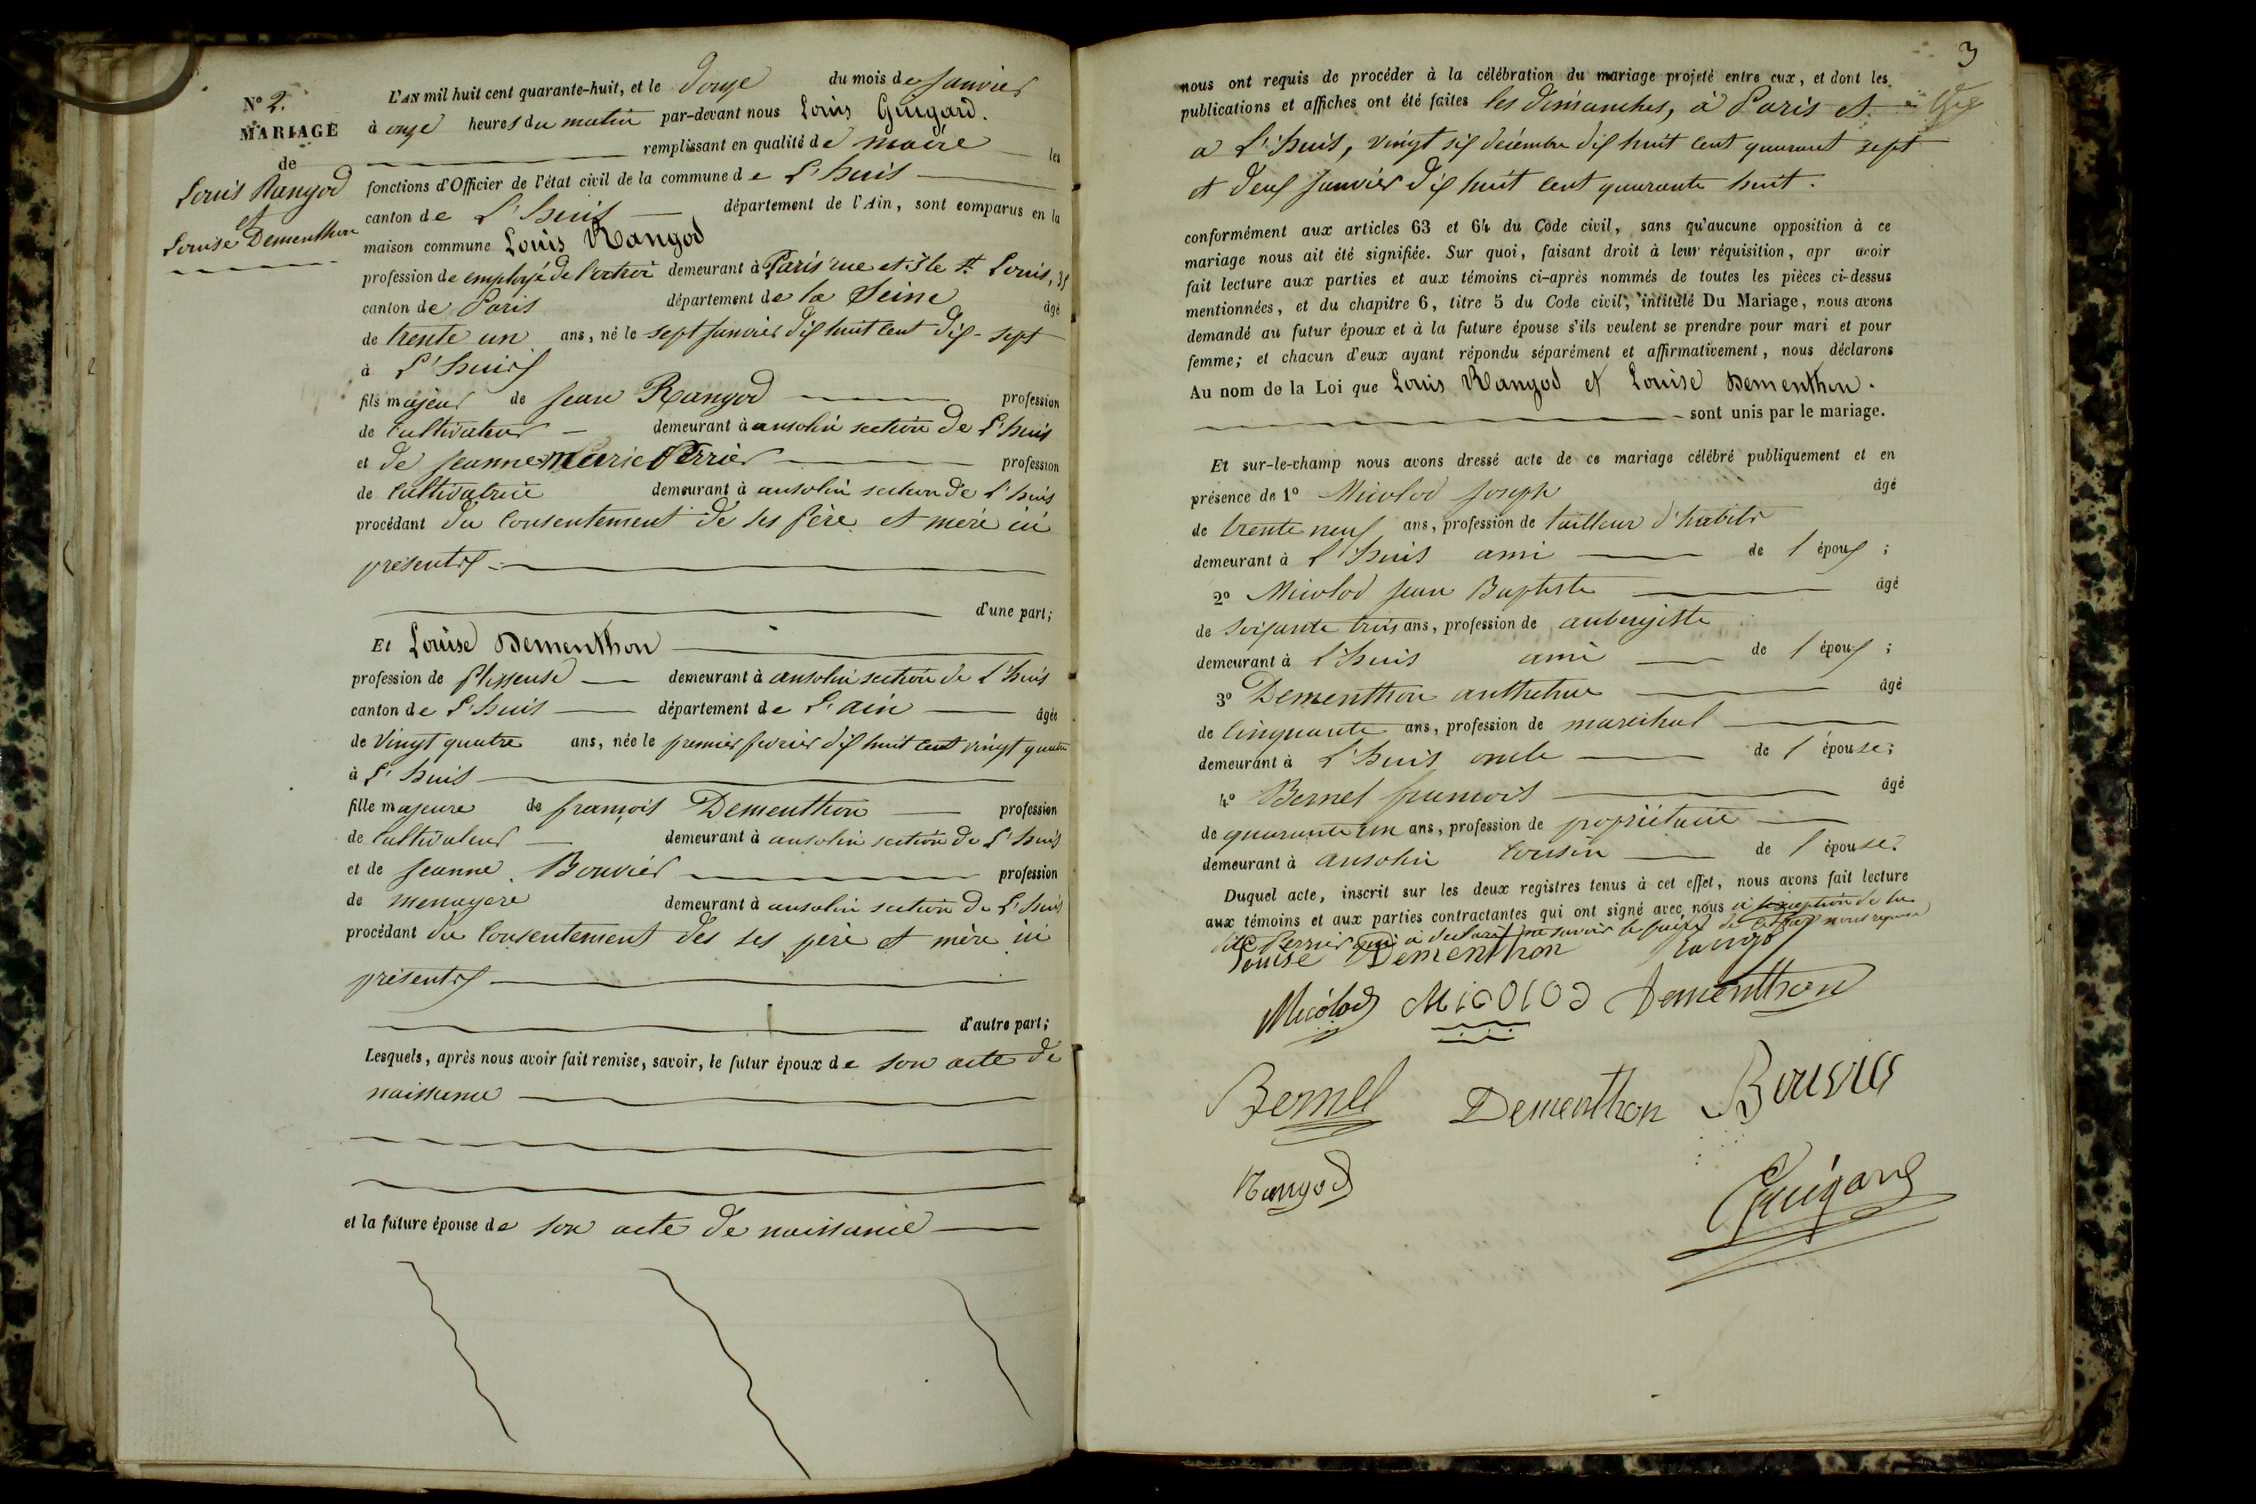 N° 2.
MARIAGE
de
Louis Rangod
et
Louise Dementhon
L'AN mil huit cent quarante-huit, et le douze du mois de Janvier
à onze heures du matin par-devant nous Louis Guigard.
remplissant en qualité de maire les
fonctions d'Officier de l'état civil de la commune de L'huis
canton de L'huis département de l'Ain, sont comparus en la
maison commune Louis Rangod
profession de employé de l'octroi demeurant à Paris rue et Ile St. Louis,
canton de Paris département de la Seine âgé
de trente un ans, né le sept Janvier dix huit cent dix-sept
à L'huis
fils majeur de Jean Rangod profession
de Cultivateur demeurant à ansolin section de L'huis
et de Jeanne Marie Perrier profession
de Cultivatrice demeurant à ansolin section de L'huis
procédant du Consentement de ses père et mère ici
présents
d'une part;
Et Louise Dementhon
profession de demeurant à ansolin section de L'huis
canton de L'huis département de L'ain âgée
de vingt quatre ans, née le premier fevrier dix huit cent vingt quatre
à L'huis
fille majeure de françois Dementhon profession
de Cultivateur demeurant à ansolin section de L'huis
et de Jeanne Bouvier profession
de menagere demeurant à ansolin section de L'huis
procédant du Consentement des ses père et mère ici
présents
d'autre part;
Lesquels, après nous avoir fait remise, savoir, le futur époux de son acte de
naissance
et la future épouse de son acte de naissance
3
nous ont requis de procéder à la célébration du mariage projeté entre eux, et dont les
publications et affiches ont été faites les dimanches, à Paris et
a L'huis, vingt six décembre dix huit cent quarant sept
et deux Janvier dix huit cent quarante huit.
conformément aux articles 63 et 64 du Code civil, sans qu'aucune opposition à ce
mariage nous ait été signifiée. Sur quoi, faisant droit à leur réquisition, apr avoir
fait lecture aux parties et aux témoins ci-après nommés de toutes les pièces ci-dessus
mentionnées, et du chapitre 6, titre 5 du Code civil, intitulé Du Mariage, nous avons
demandé au futur époux et à la future épouse s'ils veulent se prendre pour mari et pour
femme; et chacun d'eux ayant répondu séparément et affirmativement, nous déclarons
Au nom de la Loi que Louis Rangod et Louise Dementhon.
sont unis par le mariage.
Et sur-le-champ nous avons dressé acte de ce mariage célébré publiquement et en
présence de 1° Micolod Joseph âgé
de trente neuf ans, profession de tailleur d'habits
demeurant à L'huis ami de l'époux;
2° Micolod Jean Baptiste âgé
de soixante trois ans, profession de aubergiste
demeurant à L'huis ami de l'époux;
3° Dementhon anthelme âgé
de Cinquante ans, profession de marechal
demeurant à L'huis oncle de l'épouse;
4° Bernel francois âgé
de quarante un ans, profession de propriétaire
demeurant à ansolin Cousin de l'épouse.
Duquel acte, inscrit sur les deux registres tenus à cet effet, nous avons fait lecture
aux témoins et aux parties contractantes qui ont signé avec nous à l'exception de la
dite Perrier qui a declaré ne savoir le faire de
Louise Dementhon Rangod
Micolod Micolod Dementhon
Bernel Dementhon Bouvier
Rangod
Guigard